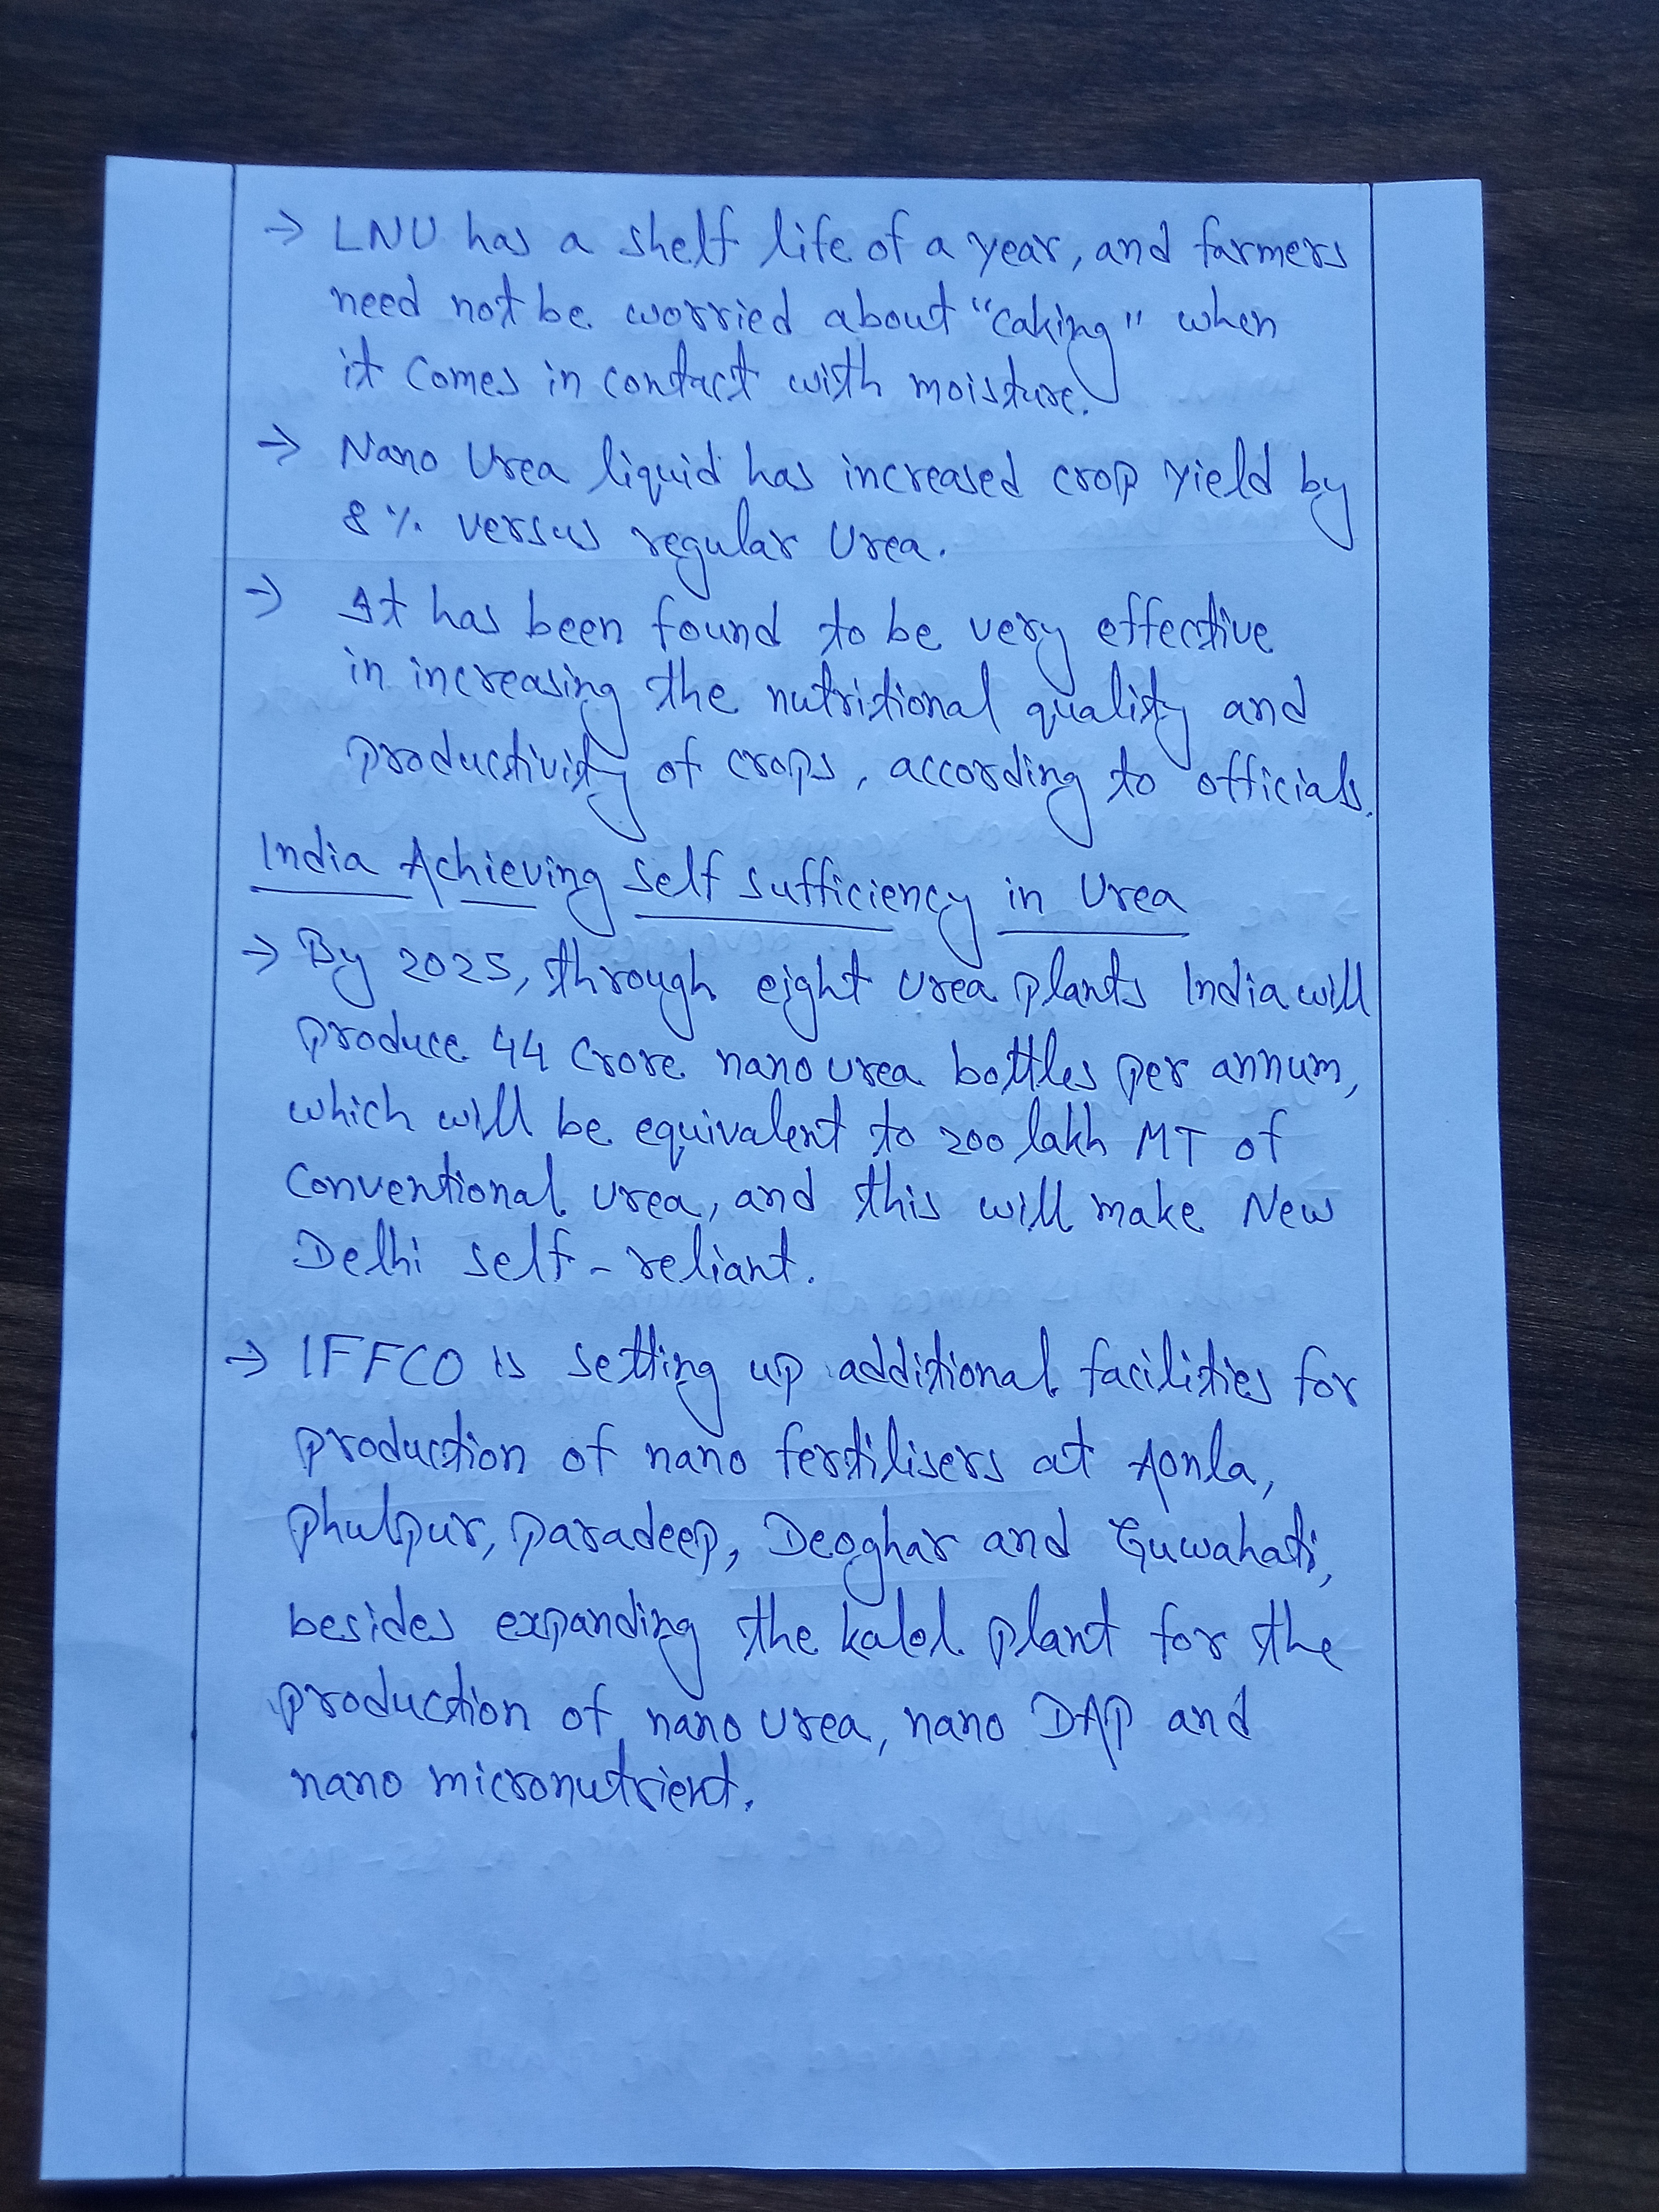 → LNU has a shelf life of a year, and farmers
need not be worried about "caking" when
it comes in contact with moisture.
→ Nano Urea liquid has increased crop yield by
8% versus regular Urea.
→ It has been found to be very effective
in increasing the nutritional quality and
productivity of crops, according to officials.
India Achieving Self Sufficiency in Urea
→ By 2025, through eight urea plants India will
produce 44 Crore nano urea bottles per annum,
which will be equivalent to 200 lakh MT of
Conventional urea, and this will make New
Delhi self-reliant.
→ IFFCO is setting up additional facilities for
production of nano fertilisers at Aonla,
Phulpur, Paradeep, Deoghar and Guwahati,
besides expanding the kalol plant for the
production of nano urea, nano DAP and
nano micronutrient.